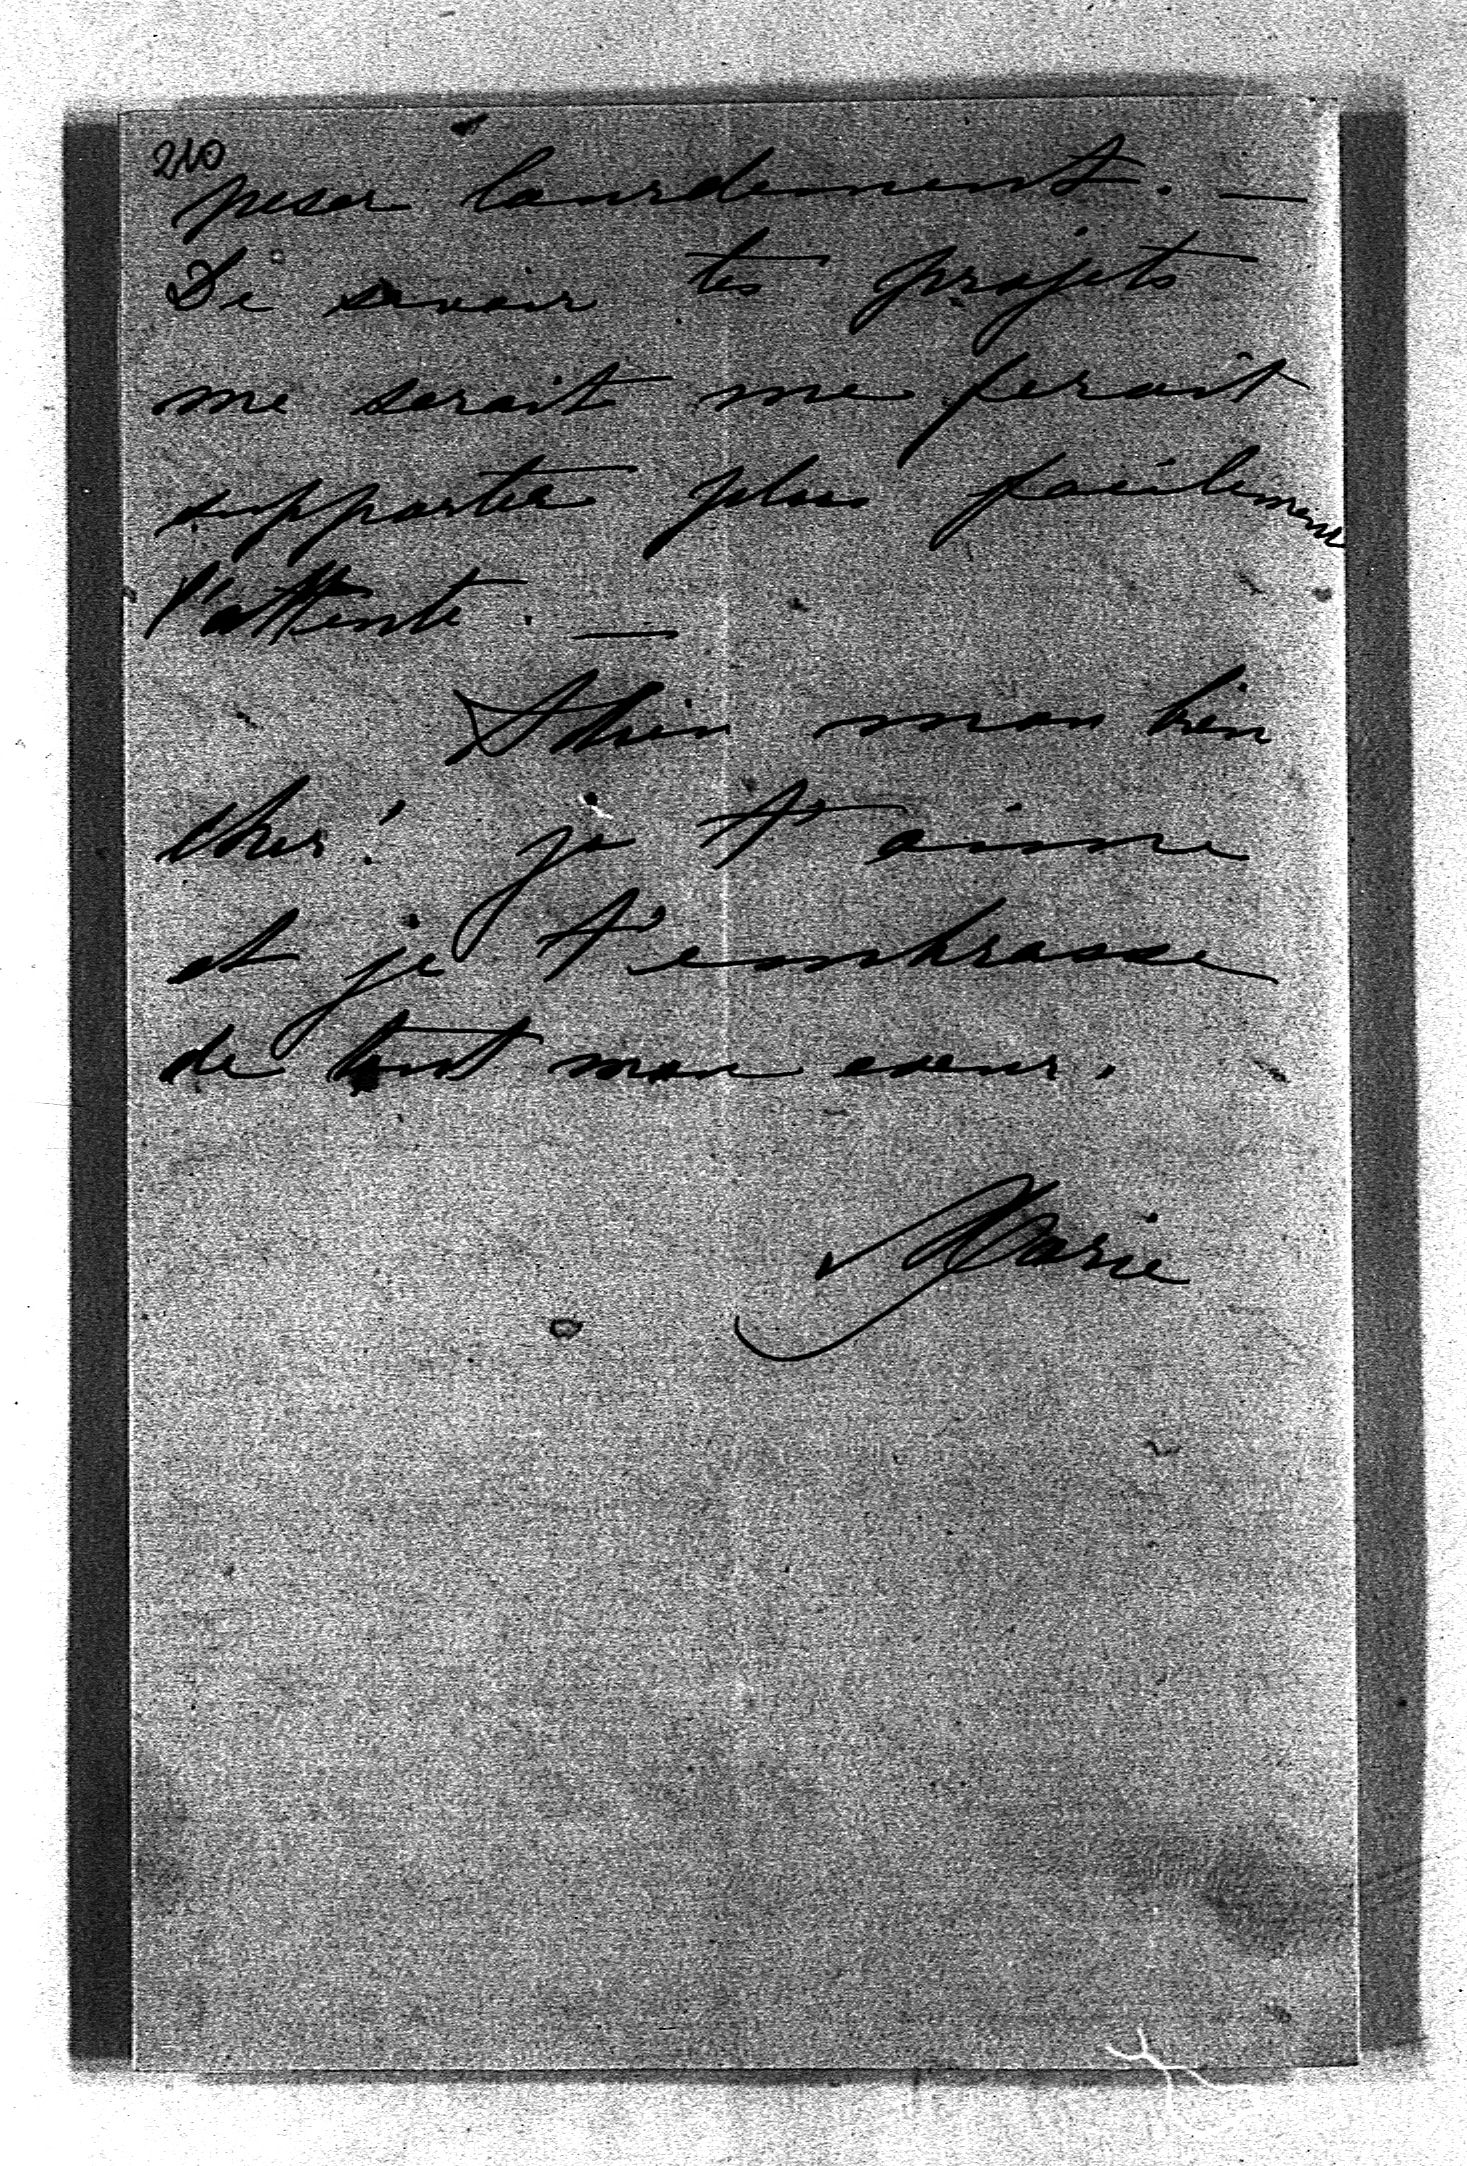 210
peser lourdement. —
De savoir tes projets
me serait me ferait
supporter plus facilement
l'attente. —
Adieu mon bien
cher! je t'aime
et je t'embrasse
de tout mon coeur.
Marie